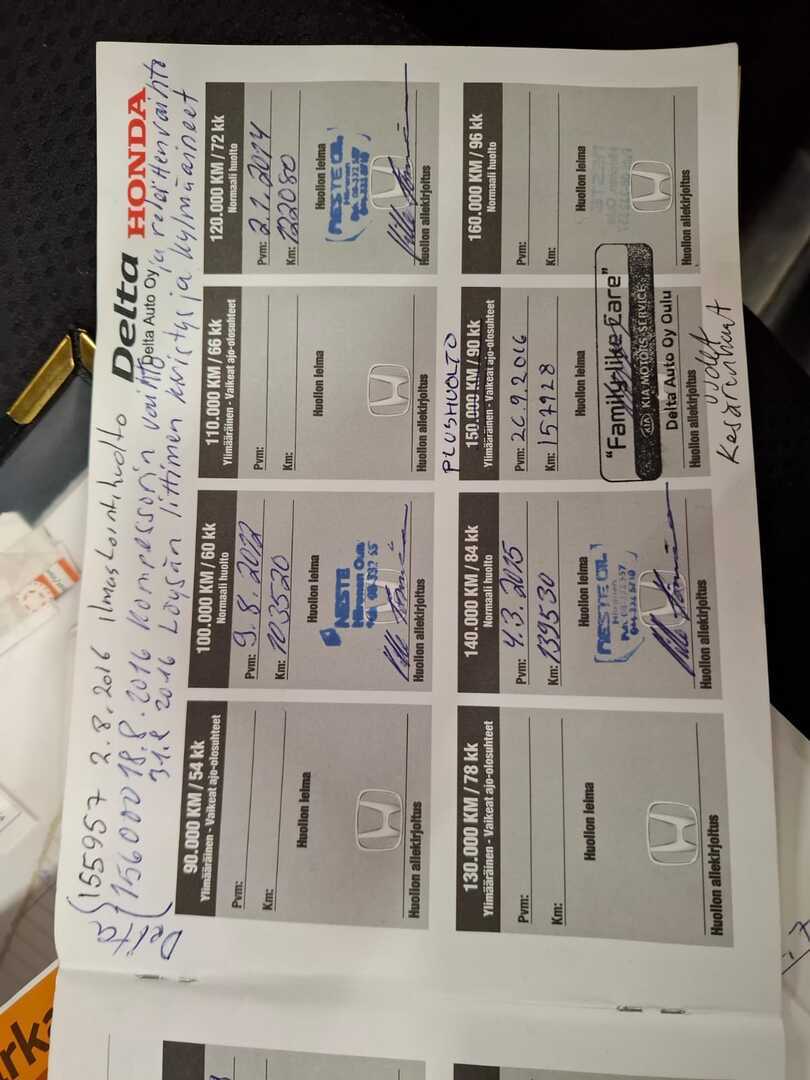 Delta HONDA
Delta Auto Oy
Delta
155957 2.8.2016 Ilmastointihuolto
156000 18.8.2016 Kompressorin vaihto ja releitten vaihto
31.8 2016 Löysän liittimen kiristys ja kylmäaineet
90.000 KM / 54 kk
Ylimääräinen - Vaikeat ajo-olosuhteet
Pvm:
Km:
Huollon leima
Huollon allekirjoitus
100.000 KM / 60 kk
Normaali huolto
Pvm: 9.8.2012
Km: 103520
Huollon leima
NESTE
Huollon allekirjoitus
110.000 KM / 66 kk
Ylimääräinen - Vaikeat ajo-olosuhteet
Pvm:
Km:
Huollon leima
Huollon allekirjoitus
120.000 KM / 72 kk
Normaali huolto
Pvm: 2.1.2014
Km: 122080
Huollon leima
NESTE OIL
Huollon allekirjoitus
130.000 KM / 78 kk
Ylimääräinen - Vaikeat ajo-olosuhteet
Pvm:
Km:
Huollon leima
Huollon allekirjoitus
140.000 KM / 84 kk
Normaali huolto
Pvm: 4.3.2015
Km: 139530
Huollon leima
NESTE OIL
Huollon allekirjoitus
PLUSHUOLTO
150.000 KM / 90 kk
Ylimääräinen - Vaikeat ajo-olosuhteet
Pvm: 26.9.2016
Km: 157928
Huollon leima
"Family-like Care"
KIA KIA MOTORS SERVICE
Delta Auto Oy Oulu
Huollon allekirjoitus
Uudet
Kesärenkaat
160.000 KM / 96 kk
Normaali huolto
Pvm:
Km:
Huollon leima
Huollon allekirjoitus